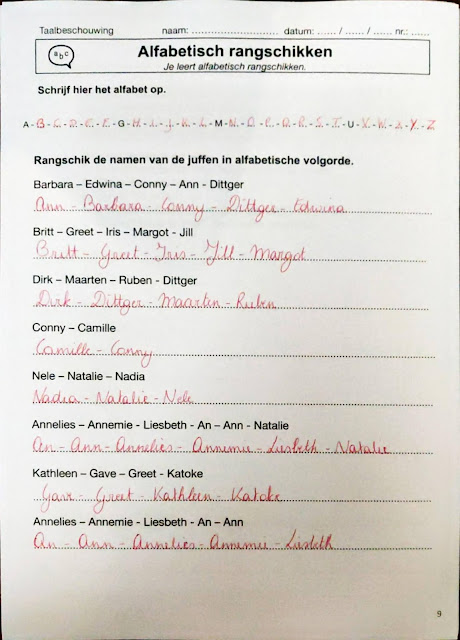 Taalbeschouwing naam: ................................ datum: ...... / ...... / ...... nr.: ......
abc
Alfabetisch rangschikken
Je leert alfabetisch rangschikken.
Schrijf hier het alfabet op.
A - B - C - D - E - F - G - H - I - J - K - L - M - N - O - P - Q - R - S - T - U - V - W - X - Y - Z
Rangschik de namen van de juffen in alfabetische volgorde.
Barbara – Edwina – Conny – Ann - Dittger
Ann - Barbara - Conny - Dittger - Edwina
Britt – Greet – Iris – Margot - Jill
Britt - Greet - Iris - Jill - Margot
Dirk – Maarten – Ruben - Dittger
Dirk - Dittger - Maarten - Ruben
Conny – Camille
Camille - Conny
Nele – Natalie – Nadia
Nadia - Natalie - Nele
Annelies – Annemie - Liesbeth - An – Ann - Natalie
An - Ann - Annelies - Annemie - Liesbeth - Natalie
Kathleen – Gave – Greet - Katoke
Gave - Greet - Kathleen - Katoke
Annelies – Annemie - Liesbeth – An – Ann
An - Ann - Annelies - Annemie - Liesbeth
9